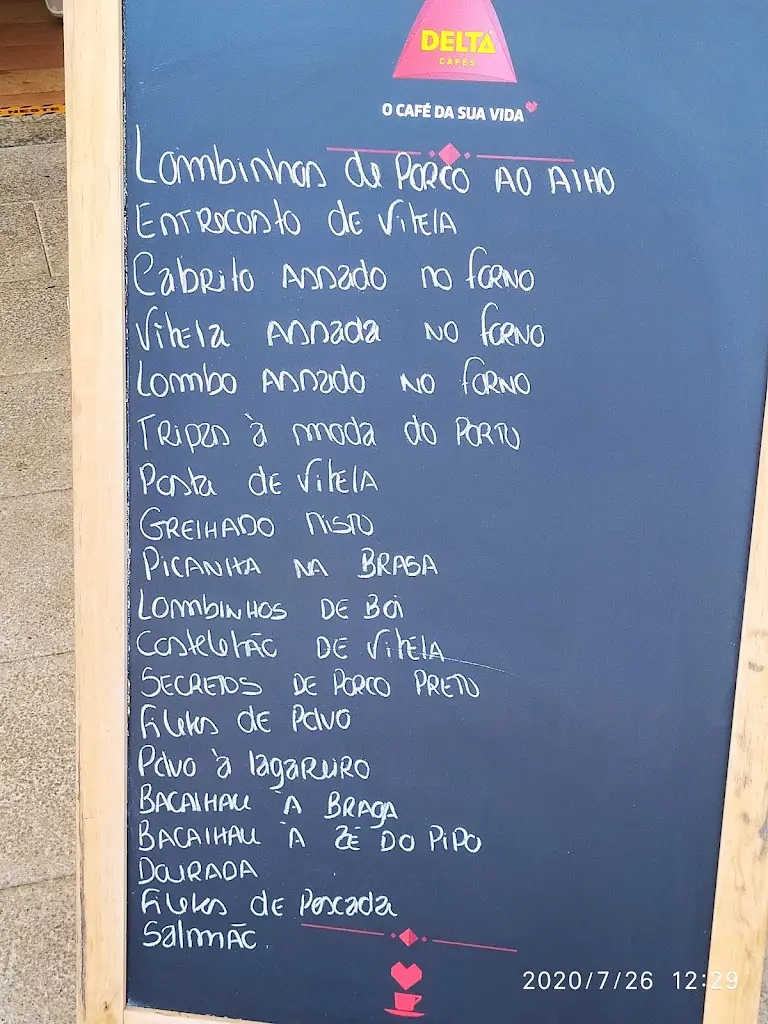 NESTE
DELTA
CAFÉS
O CAFÉ DA SUA VIDA
Lombinhos de PORCO AO AlHO
ENTRECOSTO dE VitElA
Cabrito ASSADO NO fORNO
VitEla ASSADA NO fORNO
Lombo ASSADO NO fORNO
TRIPAS à moda do PORTO
Posta dE VitElA
GRElHADO MISTO
PICANHA NA BRASA
LOMBINHOS DE BOI
COSTELETÃO DE VitElA
SECRETOS DE PORCO PRETO
Filetes dE Polvo
Polvo à lagAREIRO
BACAlHAU À BRAGA
BACAlHAU À ZÉ DO PiPO
DOURADA
Filetes dE Pescada
SalmÃO.
2020/7/26 12:29